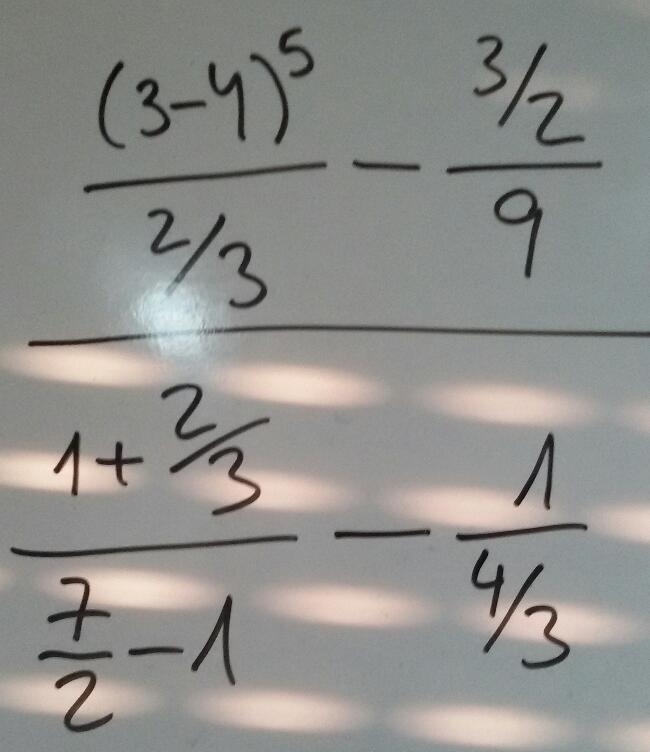 (3-4)^5 / (2/3) - (3/2) / 9
(1 + 2/3) / (7/2 - 1) - 1 / (4/3)